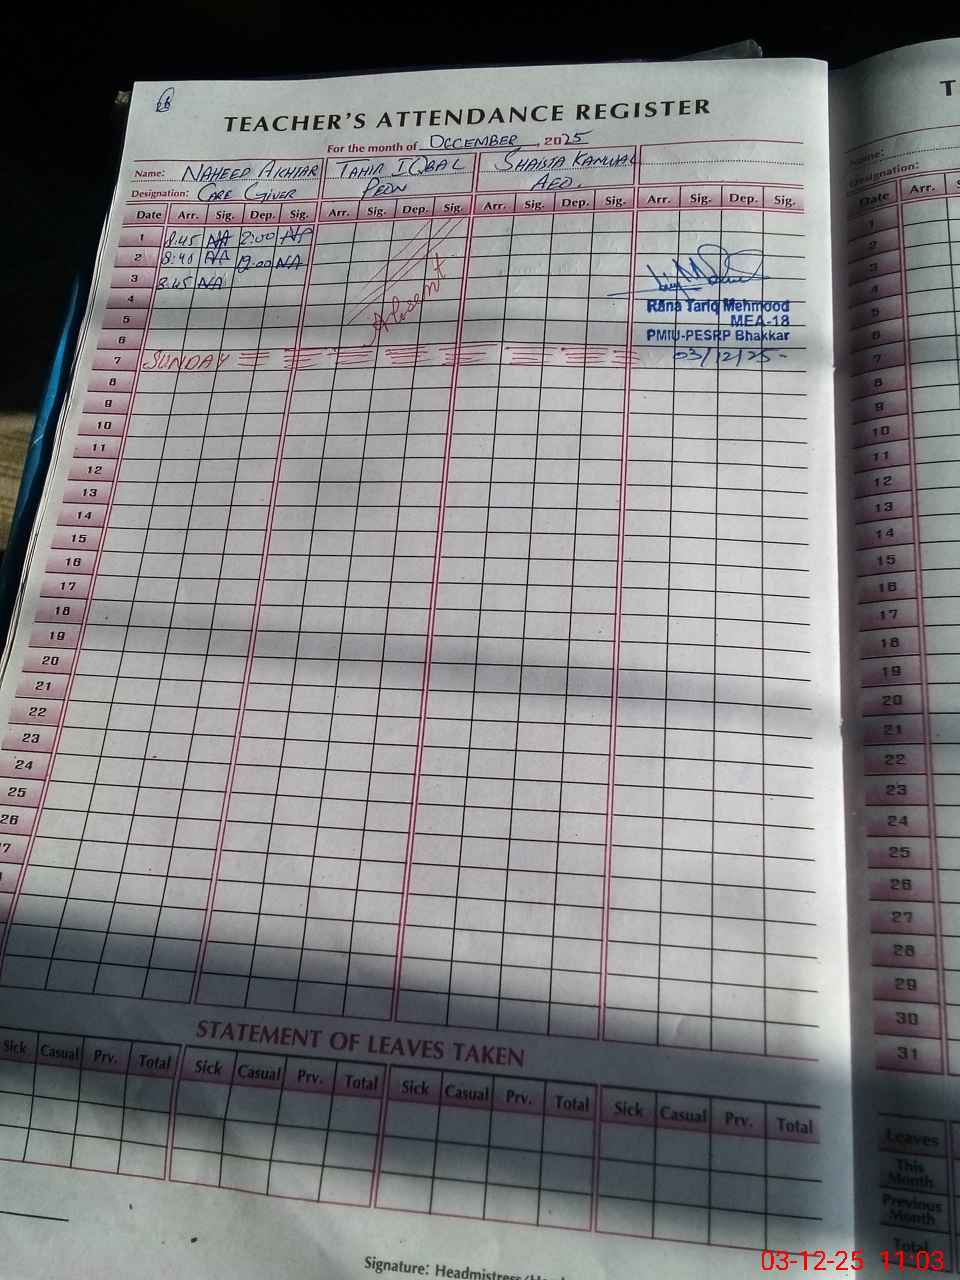 TEACHER'S ATTENDANCE REGISTER
For the month of DECEMBER, 2025
Name: NAHEED AKHTAR TAHIR IQBAL SHAISTA KANWAL
Designation: CARE GIVER PEON AEO.
Date Arr. Sig. Dep. Sig. Arr. Sig. Dep. Sig. Arr. Sig. Dep. Sig. Arr. Sig. Dep. Sig.
1 8:45 NA 2:00 NA
2 8:40 NA 2:00 NA
3 8:45 NA
4
5
6
Absent
Rana Tariq Mehmood
MEA-18
PMIU-PESRP Bhakkar
03/12/25-
7 SUNDAY
8
9
10
11
12
13
14
15
16
17
18
19
20
21
22
23
24
25
26
STATEMENT OF LEAVES TAKEN
Sick Casual Prv. Total Sick Casual Prv. Total Sick Casual Prv. Total Sick Casual Prv. Total
Signature: Headmistress/
T
Name:
Designation:
Date Arr.
1
2
3
4
5
6
7
8
9
10
11
12
13
14
15
16
17
18
19
20
21
22
23
24
25
26
27
28
29
30
31
Leaves
This Month
Previous Month
Total
03-12-25 11:03